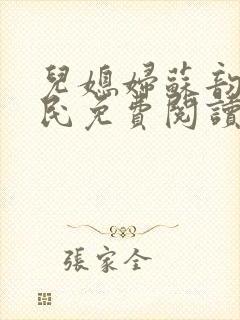 兒媳婦蘇韵
民免費閱讀
張家全